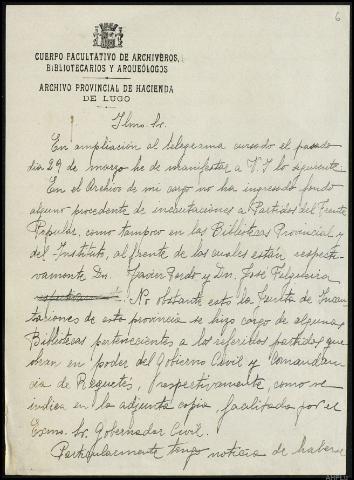 6
CUERPO FACULTATIVO DE ARCHIVEROS,
BIBLIOTECARIOS Y ARQUEÓLOGOS
ARCHIVO PROVINCIAL DE HACIENDA
DE LUGO
Ilmo Sr.
En ampliación al telegrama cursado el pasado
día 29 de marzo he de manifestar a V. I lo siguiente:
En el Archivo de mi cargo no ha ingresado fondo
alguno procedente de incautaciones a Partidos del Frente
Popular, como tampoco en las Bibliotecas Provincial y
del Instituto, al frente de los cuales están, respecti-
vamente Dn. Javier Pardo y Dn. José Filgueira
No obstante esto la Junta de Incau-
taciones de esta provincia se hizo cargo de algunas
Bibliotecas pertenecientes a los referidos partidos que
obran en poder del Gobierno Civil y Comandan-
cia de Requetés, respectivamente, como se
indica en la adjunta copia, facilitada por el
Exmo. Sr. Gobernador Civil.
Particularmente tengo noticia de haberse
AHPLU